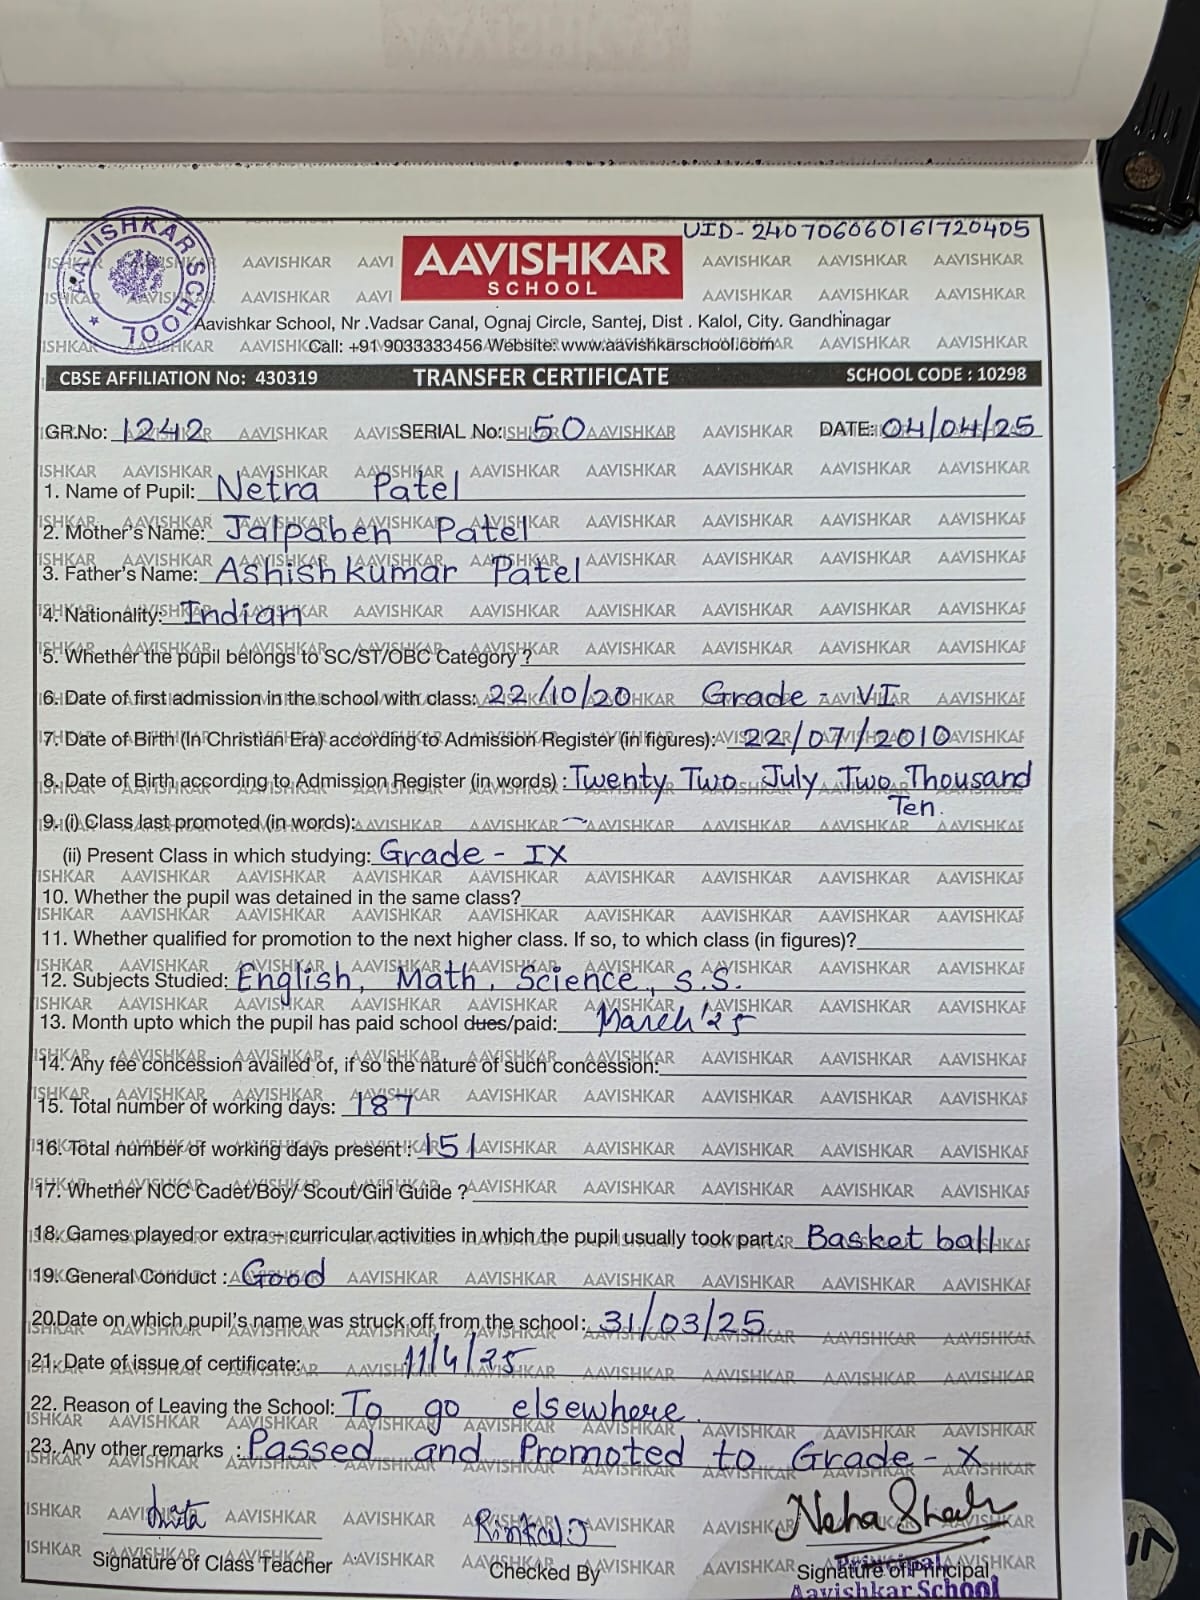 UID- 240706060161720405
AAVISHKAR SCHOOL
AAVISHKAR
SCHOOL
Aavishkar School, Nr .Vadsar Canal, Ognaj Circle, Santej, Dist . Kalol, City. Gandhinagar
Call: +91 9033333456 Website: www.aavishkarschool.com
CBSE AFFILIATION No: 430319 TRANSFER CERTIFICATE SCHOOL CODE : 10298
GR.No: 1242 SERIAL No: 50 DATE: 04/04/25
1. Name of Pupil: Netra Patel
2. Mother's Name: Jalpaben Patel
3. Father's Name: Ashishkumar Patel
4. Nationality: Indian
5. Whether the pupil belongs to SC/ST/OBC Category ?
6. Date of first admission in the school with class: 22/10/20 Grade - VI
7. Date of Birth (In Christian Era) according to Admission Register (in figures): 22/07/2010
8. Date of Birth according to Admission Register (in words) : Twenty Two July Two Thousand
Ten.
9. (i) Class last promoted (in words): -
(ii) Present Class in which studying: Grade - IX
10. Whether the pupil was detained in the same class?
11. Whether qualified for promotion to the next higher class. If so, to which class (in figures)?
12. Subjects Studied: English, Math, Science, S.S.
13. Month upto which the pupil has paid school dues/paid: March'25
14. Any fee concession availed of, if so the nature of such concession:
15. Total number of working days: 187
16. Total number of working days present : 151
17. Whether NCC Cadet/Boy/ Scout/Girl Guide ?
18. Games played or extra - curricular activities in which the pupil usually took part : Basket ball
19. General Conduct : Good
20.Date on which pupil's name was struck off from the school: 31/03/25
21. Date of issue of certificate: 11/4/25
22. Reason of Leaving the School: To go elsewhere.
23. Any other remarks : Passed and Promoted to Grade - X
Rinkal J Neha Shah
Signature of Class Teacher Checked By Signature of Principal
Principal
Aavishkar School